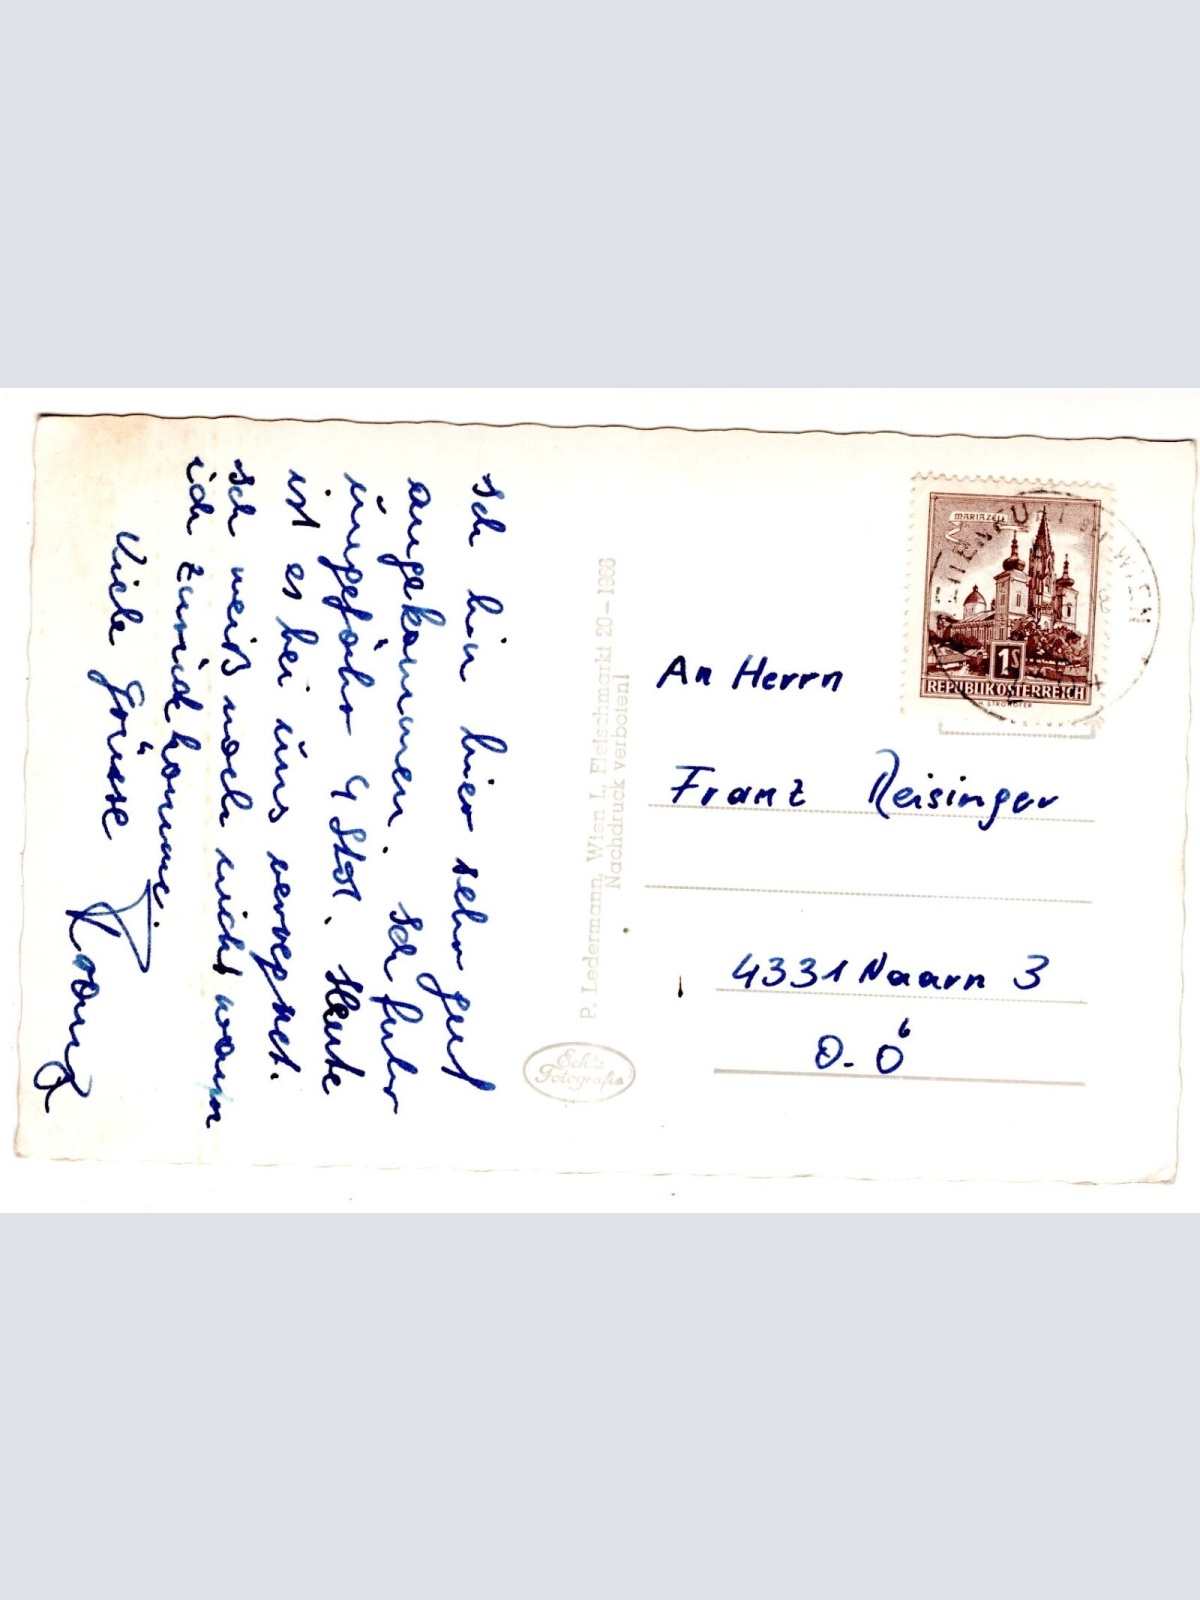 Ich bin hier sehr gut
angekommen. Ich fuhr
ungefähr 4 Std. Heute
ist es bei uns verregnet.
Ich weiß noch nicht wann
ich zurückkomme.
Viele Grüsse
Franz
P. Ledermann, Wien I, Fleischmarkt 20 – 1966
Nachdruck verboten!
Echte
Fotografie
MARIAZELL
1S
REPUBLIK ÖSTERREICH
WIEN
An Herrn
Franz Reisinger
4331 Naarn 3
O.Ö